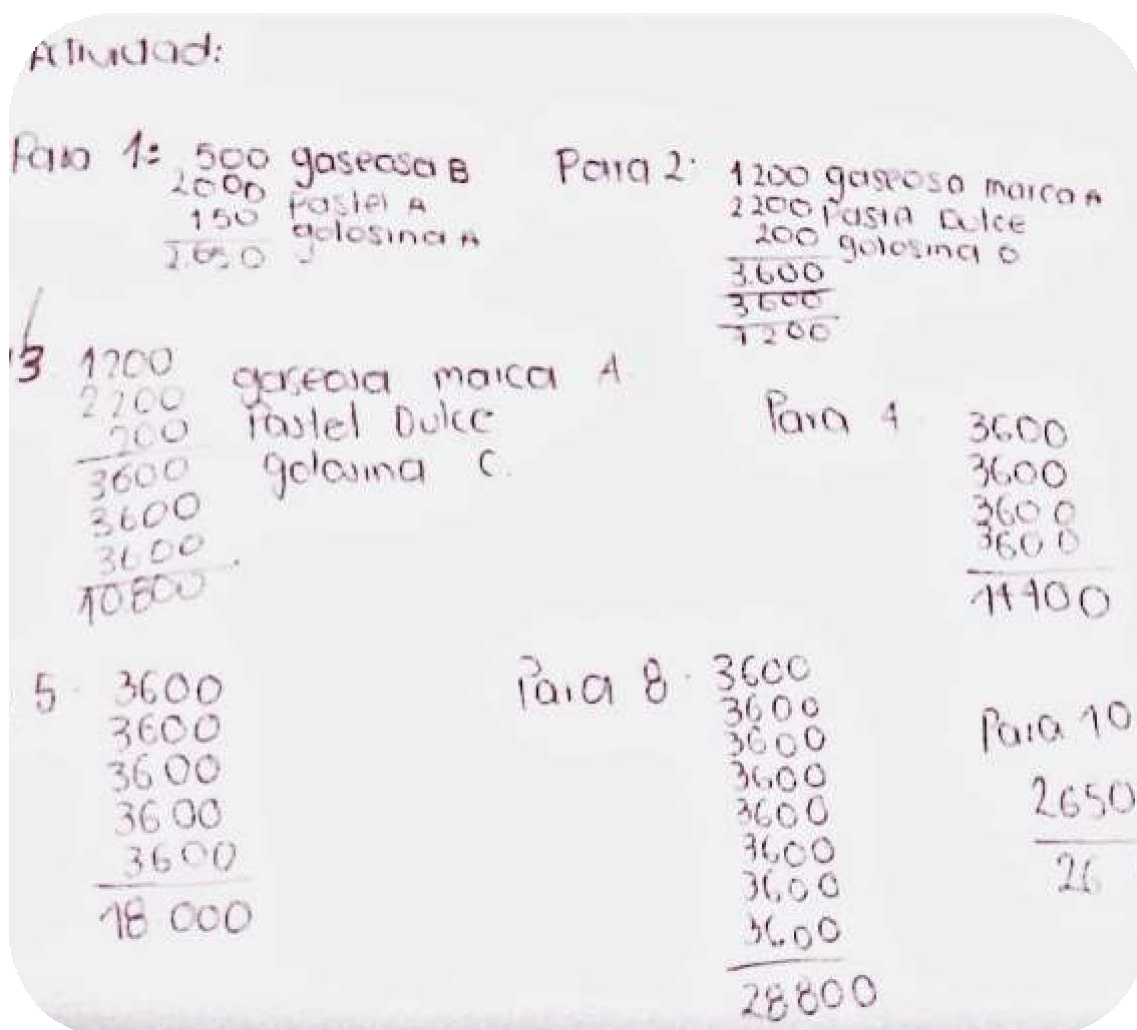 Atividad:
Para 1: 500 gaseosa B
2000 Pastel A
150 golosina A
2.650
Para 2. 1200 gaseosa marca A
2200 Pastn Dulce
200 golosina
3.600
3600
7200
3 1200 gaseosa marca A
2200 Pastel Dulce
200 golosina C.
3600
3600
3600
10.800
Para 4
3600
3600
3600
3600
14400
5. 3600
3600
3600
3600
3600
18 000
Para 8. 3600
3600
3600
3600
3600
3600
3600
3600
28800
Para 10
2650
26